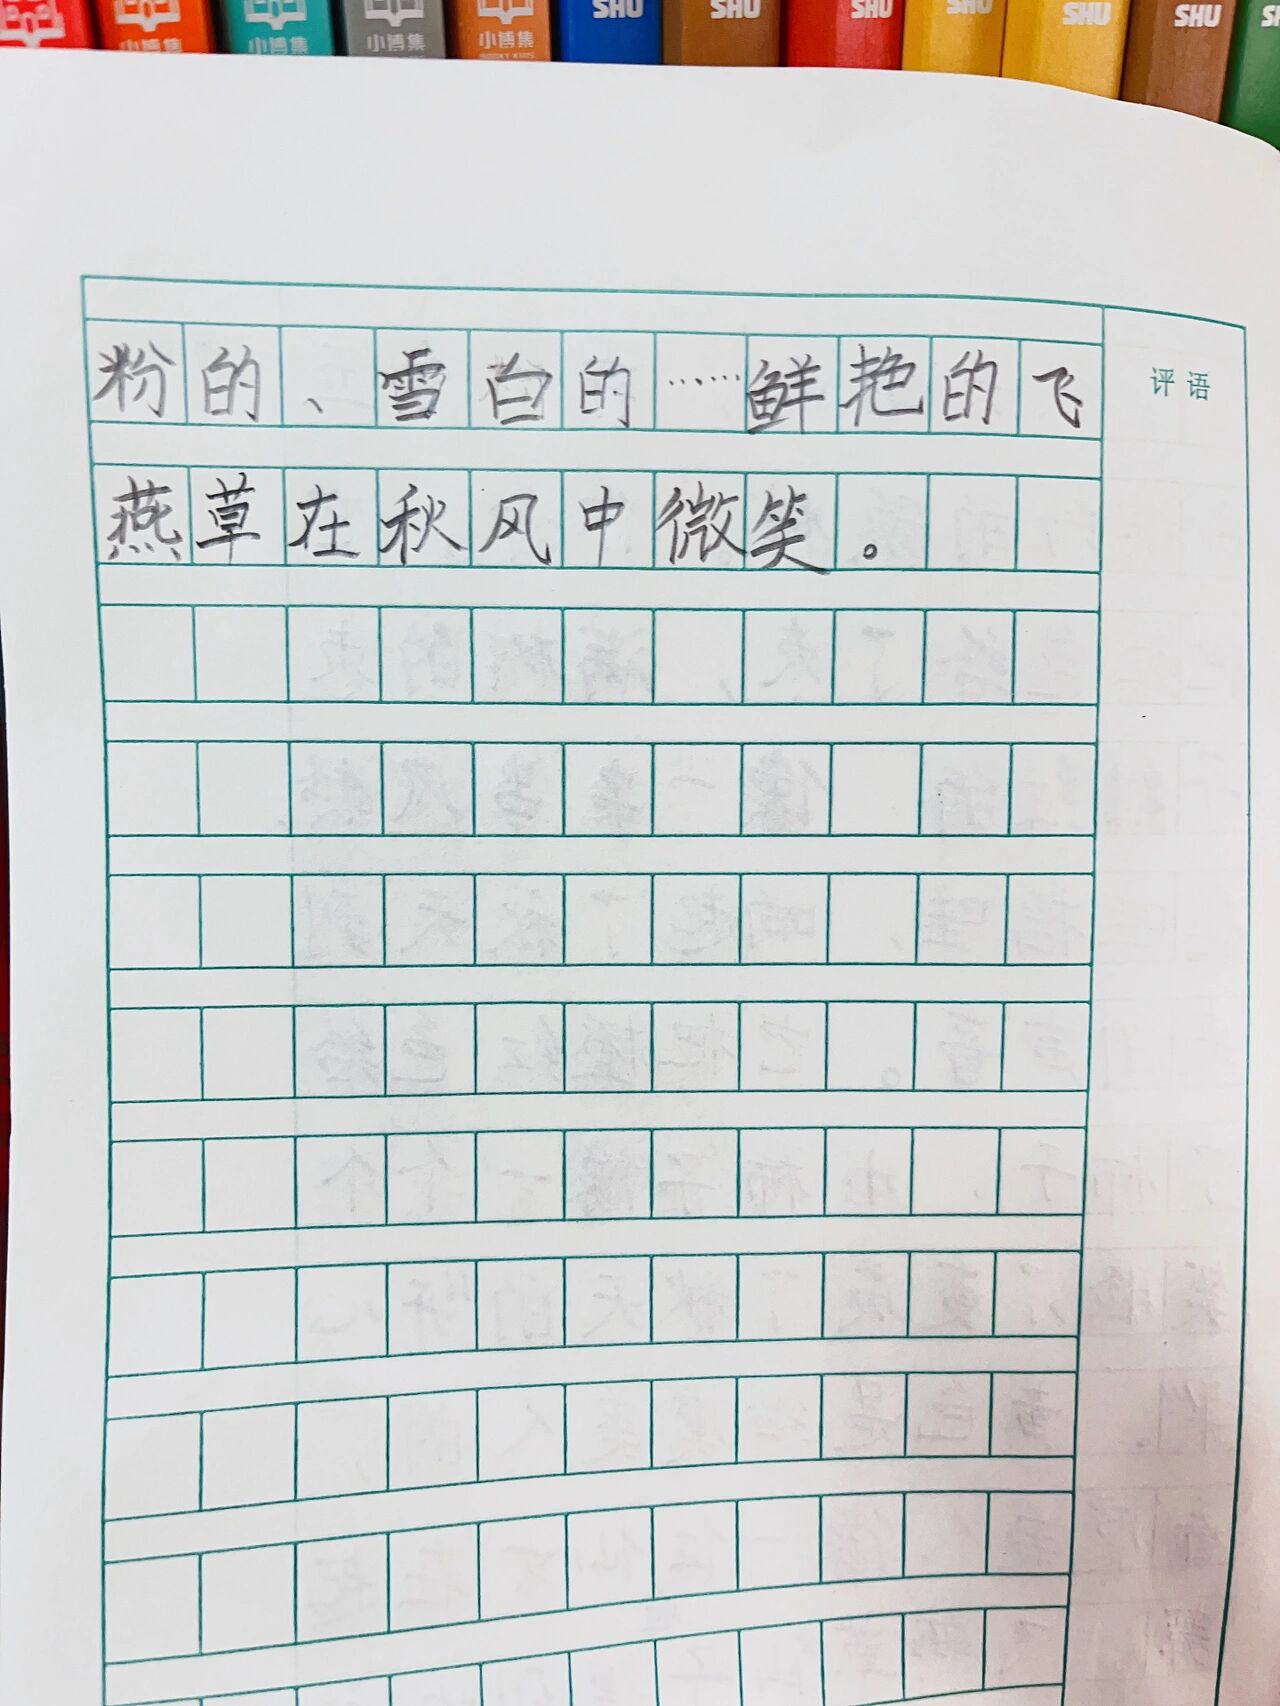 小博集 小博集 小博集 SHU SHU SHU SHU SHU SHU
BOOKY KIDS
评语
粉的、雪白的……鲜艳的飞
燕草在秋风中微笑。